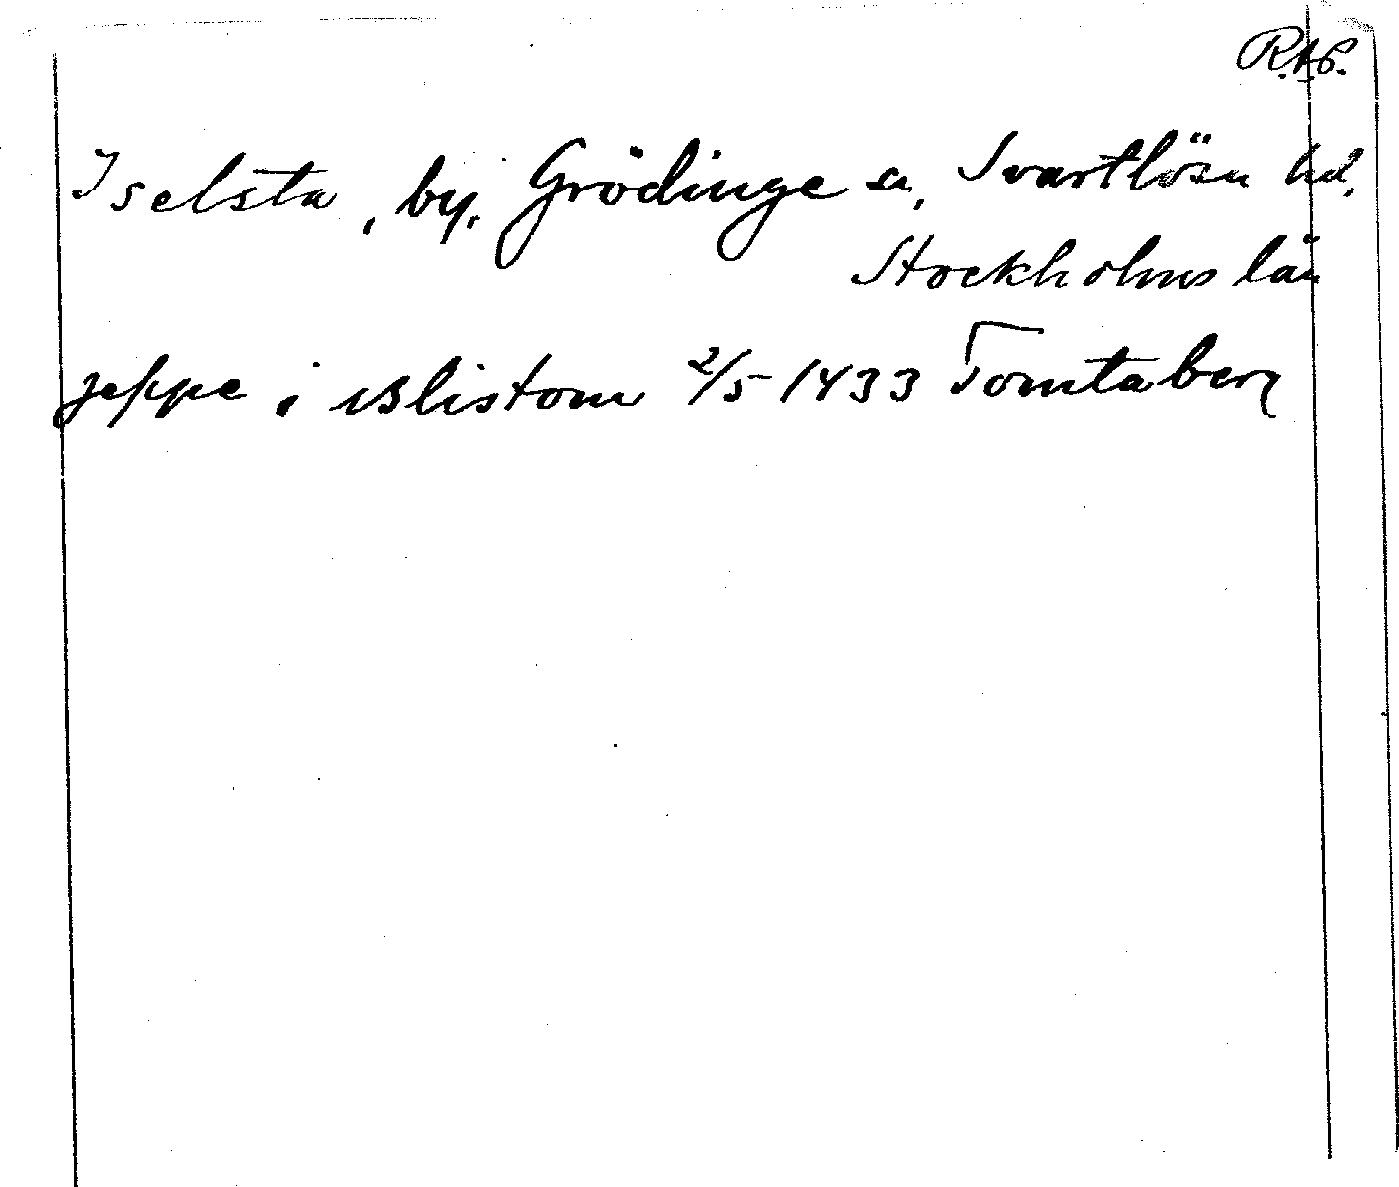 R.A.P.
Iselsta, by, Grödinge sn, Svartlösa hd.
Stockholms län
jeppe i islistom 2/5 1433 Tomtaberg